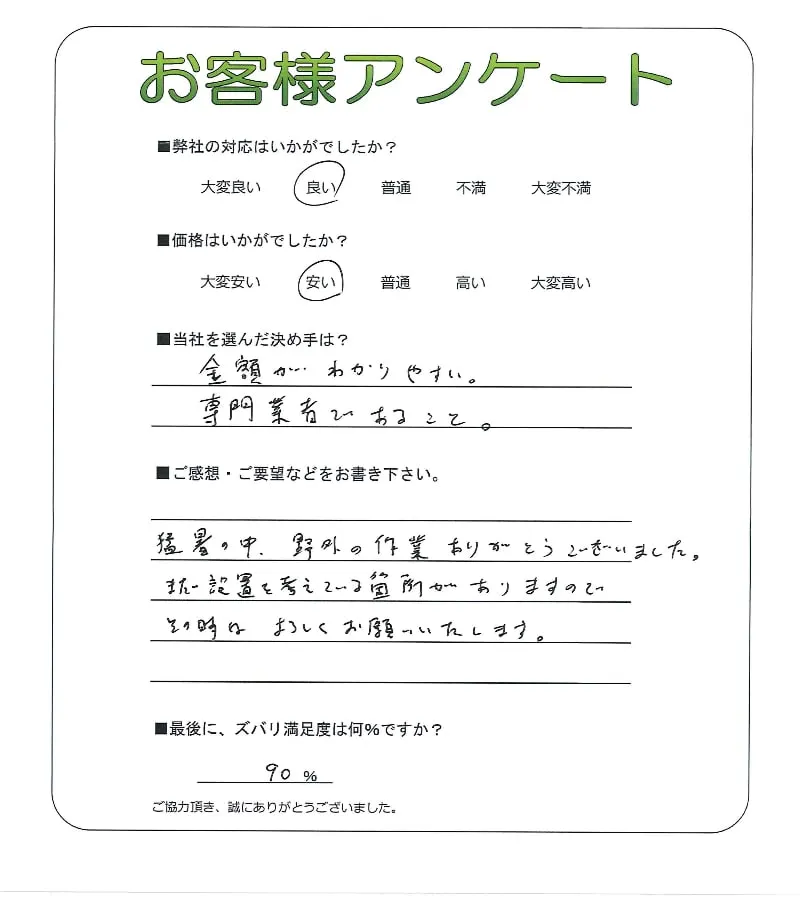 お客様アンケート
■弊社の対応はいかがでしたか？
大変良い 良い 普通 不満 大変不満
■価格はいかがでしたか？
大変安い 安い 普通 高い 大変高い
■当社を選んだ決め手は？
金額がわかりやすい。
専門業者であること。
■ご感想・ご要望などをお書き下さい。
猛暑の中、野外の作業ありがとうございました。
まだ設置を考えている箇所がありますので
その時は よろしくお願いいたします。
■最後に、ズバリ満足度は何％ですか？
90 %
ご協力頂き、誠にありがとうございました。